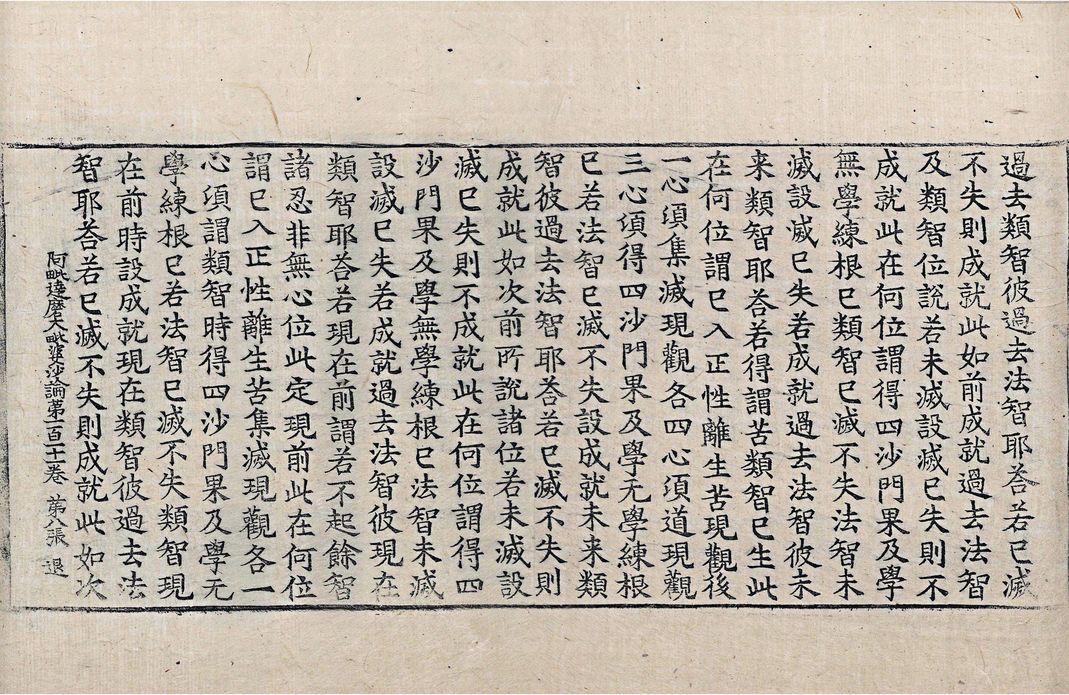 過去類智彼過去法智耶荅若已滅
不失則成就此如前成就過去法智
及類智位說若未滅設滅已失則不
成就此在何位謂得四沙門果及學
無學練根已類智已滅不失法智未
滅設滅已失若成就過去法智彼未
来類智耶荅若得謂苦類智已生此
在何位謂已入正性離生苦現觀後
一心頃集滅現觀各四心頃道現觀
三心頃得四沙門果及學无學練根
已若法智已滅不失設成就未来類
智彼過去法智耶荅若已滅不失則
成就此如次前所說諸位若未滅設
滅已失則不成就此在何位謂得四
沙門果及學無學練根已法智未滅
設滅已失若成就過去法智彼現在
類智耶荅若現在前謂若不起餘智
諸忍非無心位此定現前此在何位
謂已入正性離生苦集滅現觀各一
心頃謂類智時得四沙門果及學无
學練根已若法智已滅不失類智現
在前時設成就現在類智彼過去法
智耶荅若已滅不失則成就此如次
阿毗達磨大毗婆沙論第一百十卷 第八張 退